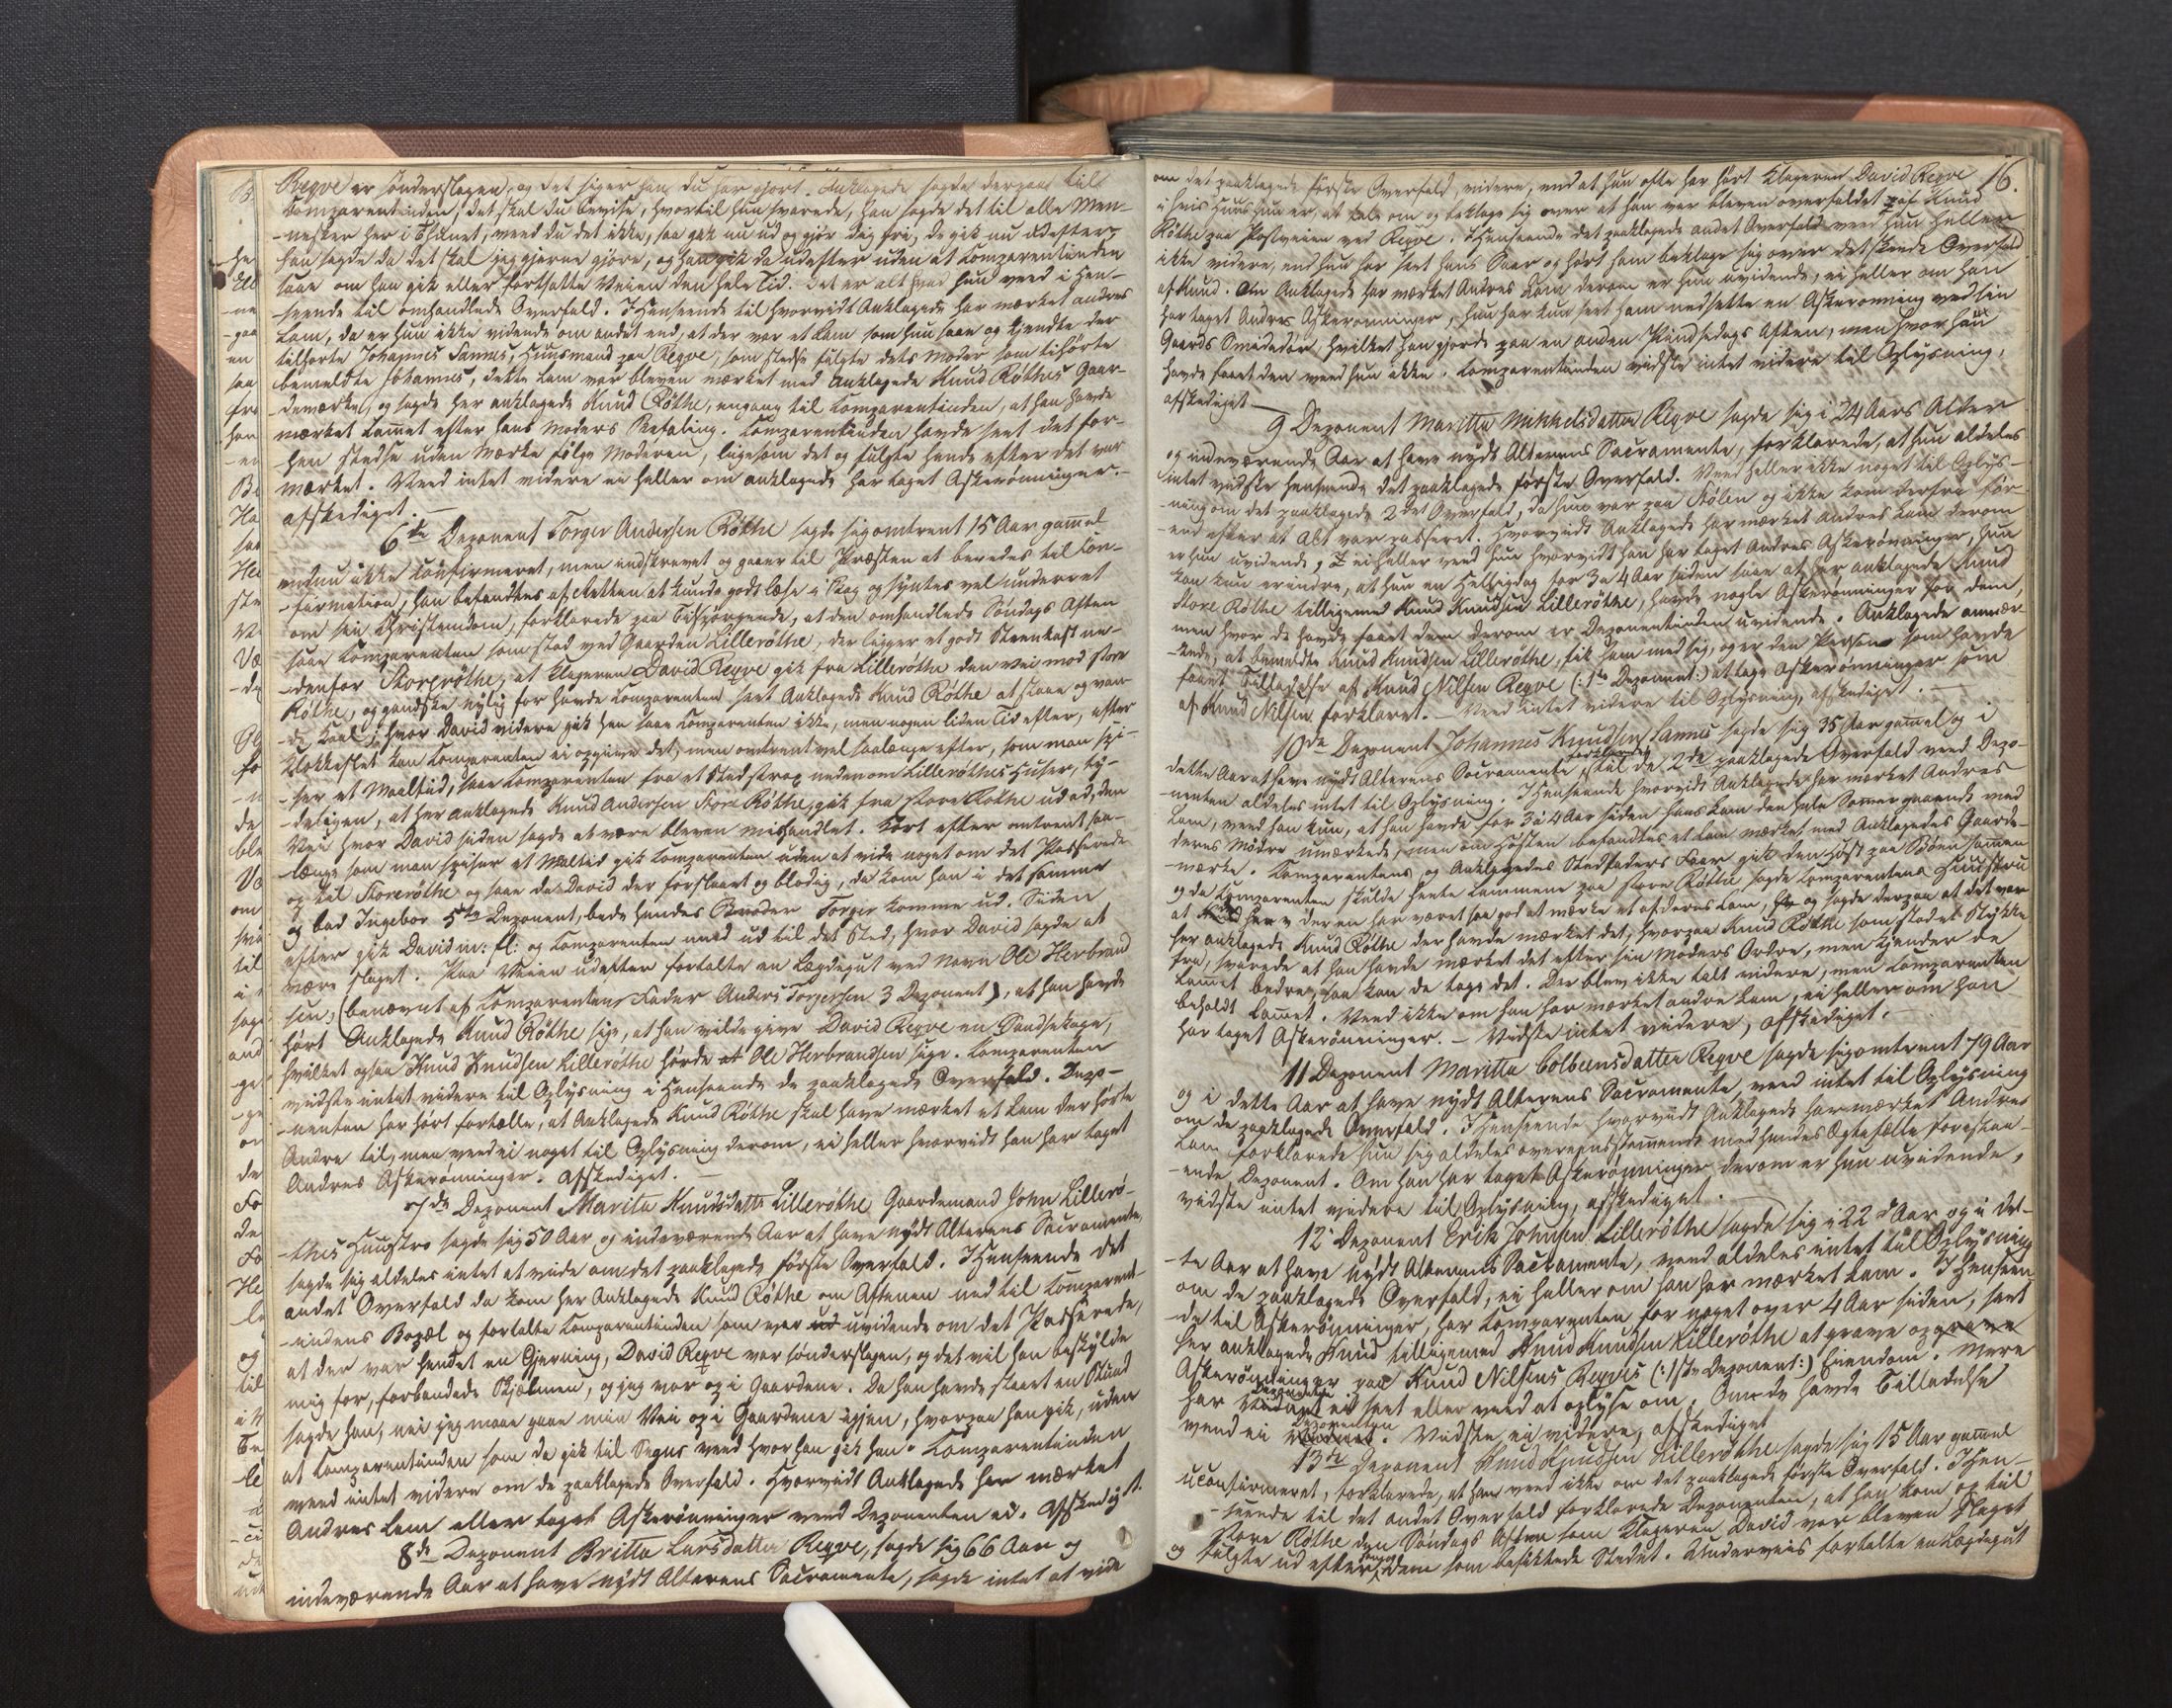 Reqve er sønderslagen, og det siger han du har gjort. Anklagede sagde derpaa til
Comparentinden, det skal du bevise, hvortil hun svarede, han sagde det til alle Men-
-nesker her i Thunet, veed du det ikke, saa gak nu ud og gjør dig fri, de gik nu udefter,
han sagde da det skal jeg gjerne gjøre, og han gik da udefter uden at Comparentinden
saae om han gik eller fortsatte Veien den hele Tid. Det er alt hvad hun veed i Hen-
-seende til omhandlede Overfald. I Henseende til hvorvidt Anklagede har mærket andres
Lam, da er hun ikke vidende om andet end, at der var et Lam som hun saae og kjendte der
tilhørte Johannes Lannes, Huusmand paa Reqve, som stedse fulgte dets Moder som tilhørte
bemeldte Johannes, dette Lam var bleven mærket med Anklagede Knud Røthes Gaar-
-demærke, og sagde her anklagede Knud Røthe, engang til Comparentinden, at han havde
mærket Lammet efter hans Moders Befaling. Comparentinden havde seet det for-
-hen stedse uden Mærke følge Moderen, ligesom det og fulgte hende efter det var
mærket. Veed intet videre ei heller om anklagede har taget Askerønninger.
afskediget. —
6te Deponent Torger Andersen Røthe sagde sig omtrent 15 Aar gammel
endnu ikke Confirmeret, men indskrevet og gaaer til Præsten at beredes til Con-
-firmation, han befandtes af Retten at kunde godt læse i Bog og syntes vel underret
om sin Christendom, forklarede paa Tilspørgende, at den omhandlede Søndags Aften
saae Comparenten som stod ved Gaarden Lillerøthe, der ligger et godt Steenkast ne-
-denfor Storerøthe, at Klageren David Reqve gik fra Lillerøthe den Vei mod Store
Røthe, og gandske nylig før havde Comparenten seet Anklagede Knud Røthe at staae og van-
de Kaal, hvor David videre gik hen saae Comparenten ikke, men nogen liden Tid efter, efter
Klokkeslet kan Comparenten ei opgive det, men omtrent vel saalænge efter, som man spi-
-ser et Maaltid, saae Comparenten fra et Sted strax nedenom Lillerøthes Huser, ty-
-deligen, at her anklagede Knud Andersen Store Røthe, gik fra Store Røthe ud ad, den
Vei hvor David siden sagde at være bleven mishandlet. Kort efter omtrent saa-
-længe som man spiser et Maltid gik Comparenten uden at vide noget om det Passerede
op til Storerøthe og saae da David der forslaaet og blodig, da kom han i det samme
og bad Ingebor 5te Deponent, bede hendes Broder Torger komme ud. Siden
efter gik David m: fl: og Comparenten med ud til det Sted, hvor David sagde at
være slaget. Paa Veien udefter fortalte en Lægdegut ved Navn Ole Herbrand
sen, (benævnt af Comparentens Fader Anders Torgersen 3 Deponent), at han havde
hørt Anklagede Knud Røthe sige, at han vilde give David Reqve en Sandsekage,
hvilket ogsaa Knud Knudsen Lillerøthe hørde at Ole Herbrandsen sige. Comparenten
vidste intet videre til Oplysning i Henseende de paaklagede Overfald. Depo-
-nenten har hørt fortælle, at Anklagede Knud Røthe skal have mærket et Lam der hørte
Andre til, men veed ei noget til Oplysning derom, ei heller hvorvidt han har taget
Andres Askerønninger. Afskediget. —
7de Deponent Marita Knudsdatter Lillerøthe Gaardemand John Lillerø-
-thes Huustro sagde sig 50 Aar og indeværende Aar at have nydt Alterens Sacramente,
sagde sig aldeles intet at vide om det paaklagede første Overfald. I Henseende det
andet Overfald da kom her Anklagede Knud Røthe om Aftenen ned til Comparent-
-indens Bopæl og fortalte Comparentinden som var uvidende om det Passerede,
at der var hendet en Gjerning, David Reqve var sønderslagen, og det vil han beskylde
mig for, forbandede Skjelmen, og jeg var op i Gaardene. Da han havde staaet en Stund
sagde han, nei jeg maae gaae min Vei op i Gaardene igjen, hvorpaa han gik, uden
at Comparentinden som da gik til Sengs veed hvor han gik hen. Comparentinden
veed intet videre om de paaklagede Overfald. Hvorvidt Anklagede har mærket
Andres Lam eller taget Askerønninger veed Deponenten ei. Afskediget.
8de Deponent Britta Larsdatter Reqve, sagde sig 66 Aar og
indeværende Aar at have nydt Alterens Sacramente, sagde intet at vide
16.
om det paaklagede første Overfald, videre, end at hun ofte har hørt Klageren David Reqve
i hvis Huus hun er, at tale om og beklage sig over at han var bleven overfaldet af Knud
Røthe paa Postveien ved Reqve. I Henseende det paaklagede andet Overfald veed hun heller
ikke videre, end hun har seet hans Saar og hørt ham beklage sig over det skeede Overfald
af Knud. Om Anklagede har mærket Andres Lam derom er hun uvidende, ei heller om han
har taget Andres Askerønninger, hun har kun seet ham nedsette en Askerønning ved sin
Gaards Smedadør, hvilket han gjorde paa en anden Pindsedags Aften, men hvor han
havde faaet den veed hun ikke. Comparentinden vidste intet videre til Oplysning,
afskediget —
9 Deponent Maritta Mikkelsdatter Reqve sagde sig i 24 Aars Alder
og indeværende Aar at have nydt Alterens Sacramente, forklarede, at hun aldeles
intet vidste henseende det paaklagede første Overfald. Veed heller ikke noget til Oplys-
-ning om det paaklagede 2det Overfald, da hun var paa Stølen og ikke kom derfra før-
-end efter at Alt var passeret. Hvorvidt Anklagede har mærket Andres Lam derom
er hun uvidende, ei heller veed hun hvorvidt han har taget Andres Askerønninger, hun
kan kun erindre, at hun en Helligdag for 3 a 4 Aar siden saae at her anklagede Knud
Store Røthe tilligemed Knud Knudsen Lillerøthe, havde nogle Askerønninger for dem,
men hvor de havde faaet dem derom er Deponentinden uvidende. Anklagede anmær-
-kede, at bemeldte Knud Knudsen Lillerøthe, fik ham med sig, og er den Person som havde
faaet Tilladelse af Knud Nilsen Reqve (: 1ste Deponent :) at tage Askerønninger som
af Knud Nilsen forklaret. — Veed intet videre til Oplysning, afskediget. —
10de Deponent Johannes Knudsen Lannes sagde sig 35 Aar gammel og i
dette Aar at have nydt Alterens Sacramente, forklarede, til de 2de paaklagede Overfald veed Depo-
-nenten aldeles intet til Oplysning. I Henseende hvorvidt Anklagede har mærket Andres
Lam, veed han kun, at han havde for 3 a 4 Aar siden hans Lam den hele Sommer gaaende med
deres Mødre umærkede, men om Høsten befandtes et Lam mærket med Anklagedes Gaarde-
-mærke. Comparentens og Anklagedes Stedfaders Faar gik den Høst paa Bøen sammen
og da Comparenten skulde hente Lammene paa Store Røthe, sagde Comparentens Huustru
at her er en har været saa god at mærke et af deres Lam, og sagde derpaa at det var
her anklagede Knud Røthe der havde mærket det, hvorpaa Knud Røthe som stod et Stykke
fra, svarede at han havde mærket det efter sin Moders Ordre, men kjender de
Lammet bedre, saa kan de tage det. Der blev ikke talt videre, men Comparenten
beholdt Lammet. Veed ikke om han har mærket andre Lam, ei heller om han
har taget Askerønninger. — Vidste intet videre, afskediget. —
11 Deponent Maritta Colbeensdatter Reqve sagde sig omtrent 79 Aar
og i dette Aar at have nydt Alterens Sacramente, veed intet til Oplysning
om de paaklagede Overfald. I Henseende hvorvidt Anklagede har mærket Andres
Lam forklarede hun sig aldeles overeensstemmende med hendes Ægtefælle foreståa-
-ende Deponent. Om han har taget Askerønninger derom er hun uvidende,
vidste intet videre til Oplysning, afskediget. —
12 Deponent Erik Johnsen Lillerøthe sagde sig i 22 Aar og i det-
-te Aar at have nydt Alterens Sacramente, veed aldeles intet til Oplysning
om de paaklagede Overfald, ei heller om han har mærket Lam. I Henseen-
-de til Askerønninger, har Comparenten for noget over 4 Aar siden, seet
her anklagede Knud tilligemed Knud Knudsen Lillerøthe at grave op
Askerønninger paa Knud Nilsens Reqves (: 1ste Deponent :) Eiendom. Mere
har Deponenten ei seet eller veed at oplyse om, Om de havde Tilladelse
veed ei Deponenten. Vidste ei videre, afskediget
13de Deponent Knud Knudsen Lillerøthe sagde sig 15 Aar gammel
uconfirmeret, forklarede, at han veed ikke om det paaklagede første Overfald. I Hen-
-seende til det andet Overfald forklarede Deponenten, at han kom op til
Store Røthe den Søndags Aften som Klageren David var bleven slaget
og fulgte ud efter med dem som besigtede Stedet. Underveis fortalte en Lægdegut